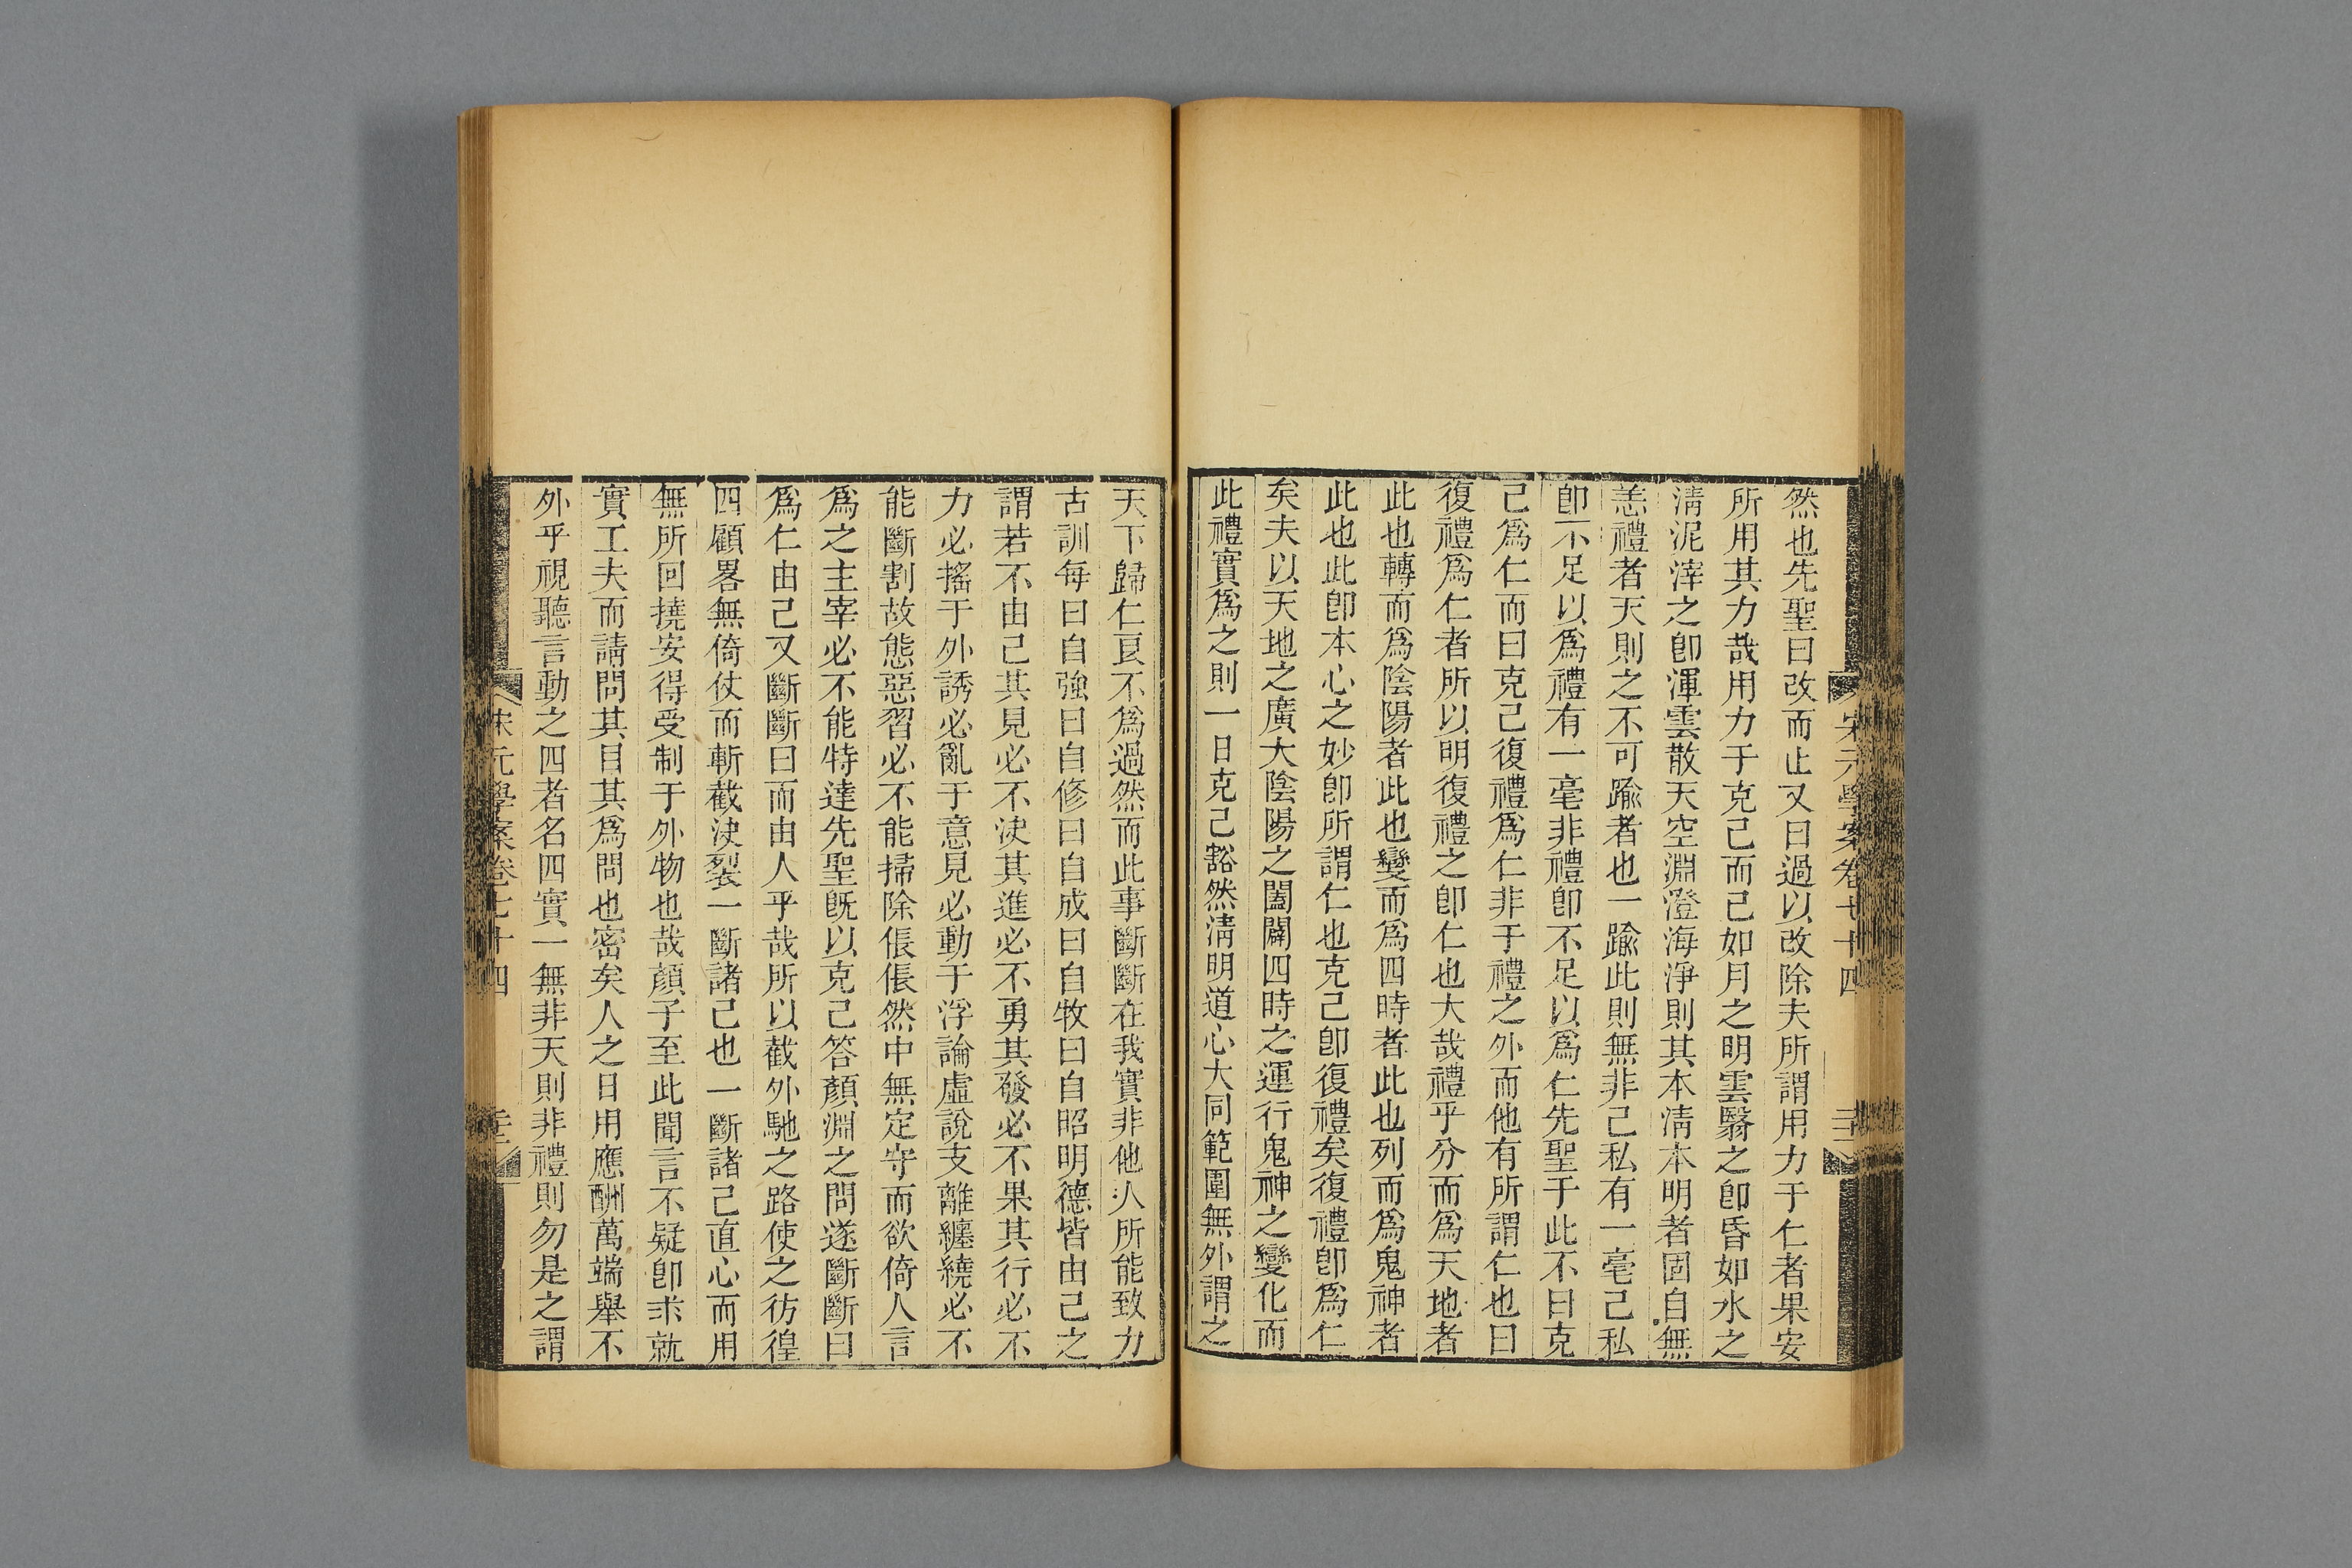 然也先聖曰改而止又曰過以改除夫所謂用力于仁者果安
所用其力哉用力于克己而已如月之明雲翳之卽昏如水之
淸泥滓之卽渾雲散天空淵澄海淨則其本淸本明者固自無
恙禮者天則之不可踰者也一踰此則無非己私有一毫己私
卽不足以爲禮有一毫非禮卽不足以爲仁先聖于此不曰克
己爲仁而曰克己復禮爲仁非于禮之外而他有所謂仁也曰
復禮爲仁者所以明復禮之卽仁也大哉禮乎分而爲天地者
此也轉而爲陰陽者此也變而爲四時者此也列而爲鬼神者
此也此卽本心之妙卽所謂仁也克己卽復禮矣復禮卽爲仁
矣夫以天地之廣大陰陽之闔闢四時之運行鬼神之變化而
此禮實爲之則一日克己豁然淸明道心大同範圍無外謂之
宋元學案卷七十四
天下歸仁豈不爲過然而此事斷斷在我實非他人所能致力
古訓每曰自強曰自修曰自成曰自牧曰自昭明德皆由己之
謂若不由己其見必不決其進必不勇其發必不果其行必不
力必搖于外誘必亂于意見必動于浮論虛說支離纏繞必不
能斷割故態惡習必不能掃除倀倀然中無定守而欲倚人言
爲之主宰必不能特達先聖旣以克己答顏淵之問遂斷斷曰
爲仁由己又斷斷曰而由人乎哉所以截外馳之路使之彷徨
四顧畧無倚仗而斬截決裂一斷諸己也一斷諸己直心而用
無所回撓安得受制于外物也哉顏子至此聞言不疑卽求就
實工夫而請問其目其爲問也密矣人之日用應酬萬端舉不
外乎視聽言動之四者名四實一無非天則非禮則勿是之謂
宋元學案卷七十四